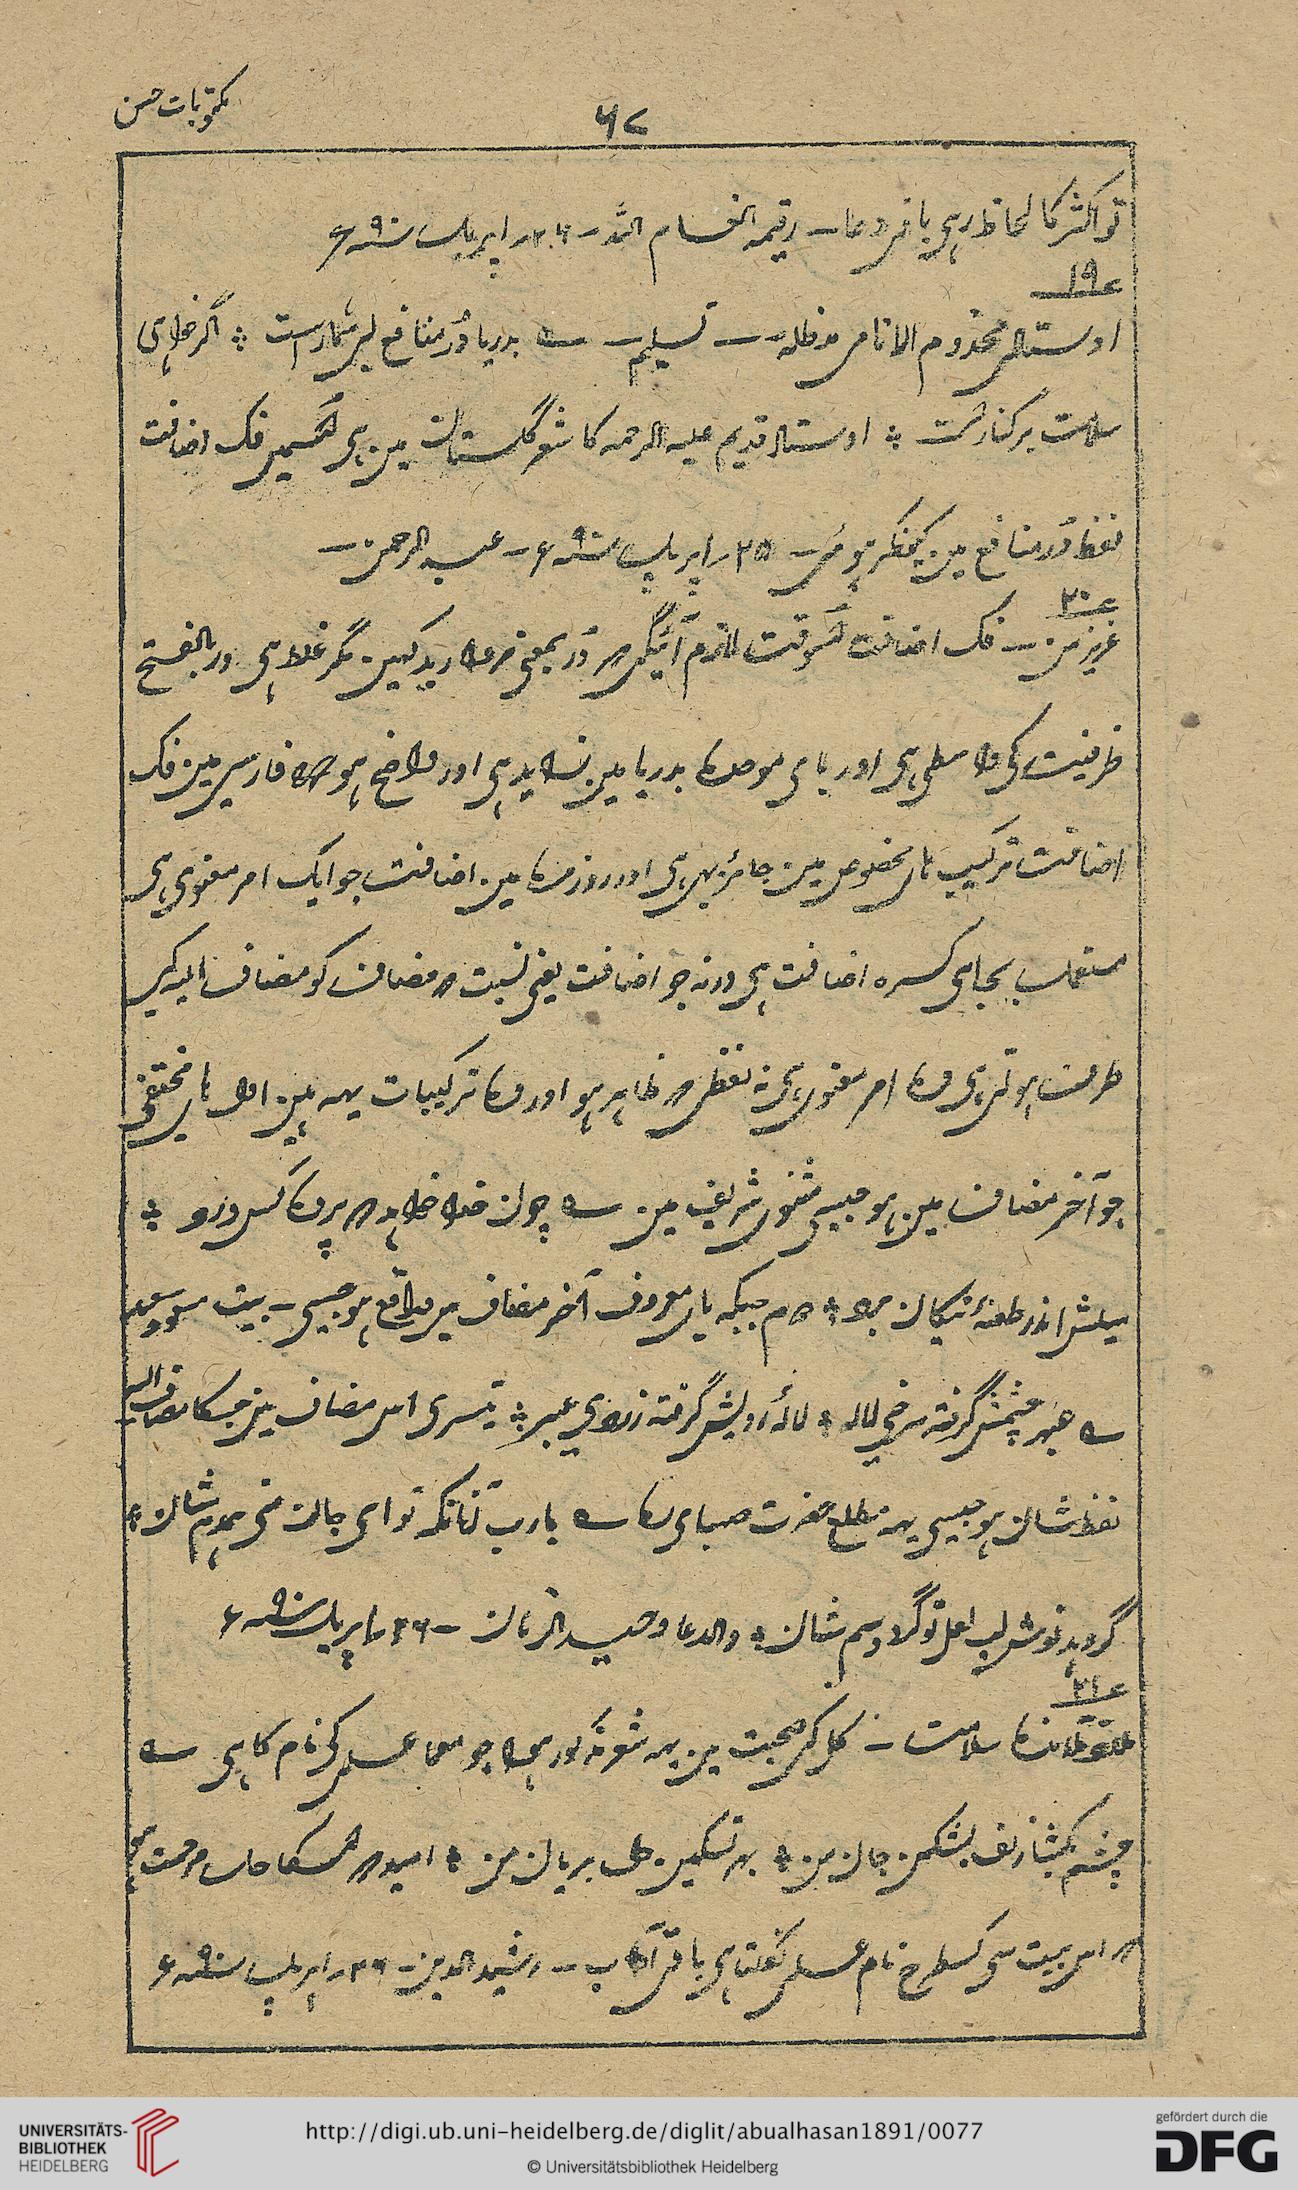 مکتوبات حسن
۶۷
تو اکثر کا لحاظ رہی باقی دعا۔ رقیمہ انعام اللہ۔ ۲۴؍ اپریل سنہ ۹۰ ء
ع ۱۹
اوستاذی مخدوم الانامی مدظلہ۔ تسلیم۔ ؎ بدریا دُر منافع بیشمارست ؞ اگر خواہی
سلامت بر کنارست ؞ اوستاد قدیم علیہ الرحمہ کا شعر گلستان مین ہی اسمین فک اضافت
لفظ دُر منافع مین کیونکر ہوئی۔ ۲۵؍ اپریل سنہ ۹۰ ء۔ عبد الرحمن۔
ع ۲۰
عزیز من۔ فک اضافت اوسوقت لازم آئیگی کہ دُر بمعنی مروارید کہین مگر غلط ہی در بالفتح
ظرفیت کی واسطی ہی اور بای موحدہ بدریا مین زاید ہی اور واضح ہو کہ فارسی مین فک
اضافت ترکیب ہای مخصوص مین جائز بھی ہی اور روزمرہ مین اضافت جو ایک امر معنوی ہی
مستعمل بجای کسرہ اضافت ہی ورنہ جو اضافت یعنی نسبت کہ مضاف کو مضاف الیہ کی
طرف ہوتی ہی وہ امر معنوی ہی نہ لفظی کہ ظاہر ہو اور وہ ترکیبات یہہ ہین اول ہای مختفی
جو آخر مضاف مین ہو جیسی مثنوی شریف مین ؎ چون خدا خواہد کہ پردہ کس درد ؞
میلش اندر طعنۂ نیکان برد ؞ دوم جبکہ یای معروف آخر مضاف مین واقع ہو جیسی۔ بیت
؎ عبہر چشمش گرفتہ سرخی لالہ ؞ لالۂ رویش گرفتہ زردی عبہر ؞ تیسری اوس مضاف مین جسکا مضاف الیہ
لفظ شان ہو جیسی یہہ مطلع حضرت صہبای کا ؎ یارب آنانکہ تو ای جان منی ہمدم شان ؞
گردید نوش لب لعل تو گاد وسم شان ؞ والدعا وحید الزمان۔ ۲۶؍ اپریل سنہ ۹۰ ء
ع ۲۱
سلامت۔ کل کی صحبت مین یہہ شعر مذکور ہوا جو معما علی کی نام کا ہی ؎
چشم بکشا زلف بشکن جان من ؞ بہر تسکین دل بریان من ؞ امید کہ اسکا حل مرحمت ہو
کہ اس بیت سی کسطرح نام علی نکلتا ہی باقی آداب۔ رشید الدین۔ ۲۶؍ اپریل سنہ ۹۰ ء
UNIVERSITÄTS-
BIBLIOTHEK
HEIDELBERG
http://digi.ub.uni-heidelberg.de/diglit/abualhasan1891/0077
© Universitätsbibliothek Heidelberg
gefördert durch die
DFG